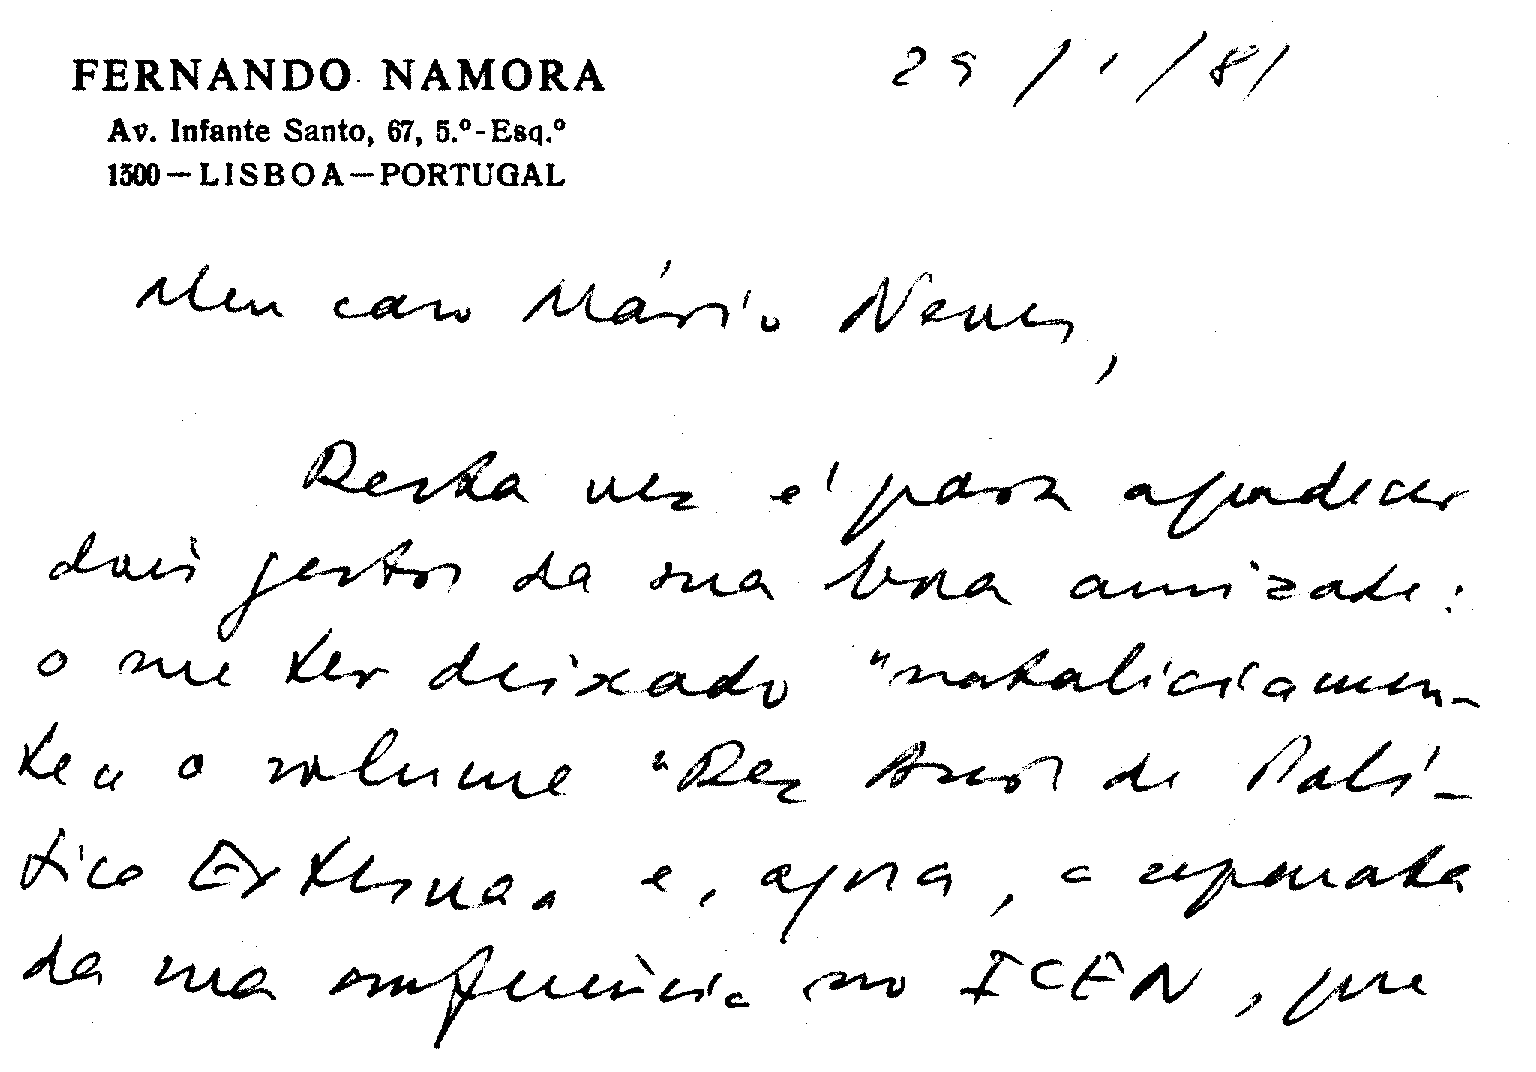 FERNANDO NAMORA
Av. Infante Santo, 67, 5.º-Esq.º
1300—LISBOA—PORTUGAL
29/1/81
Meu caro Mário Neves,
Desta vez é para agradecer
dois gestos da sua boa amizade:
o me ter deixado "nataliciamen-
te" o volume "Dez Anos de Polí-
tica Externa" e, agora, a separata
da sua conferência no ICEN, que